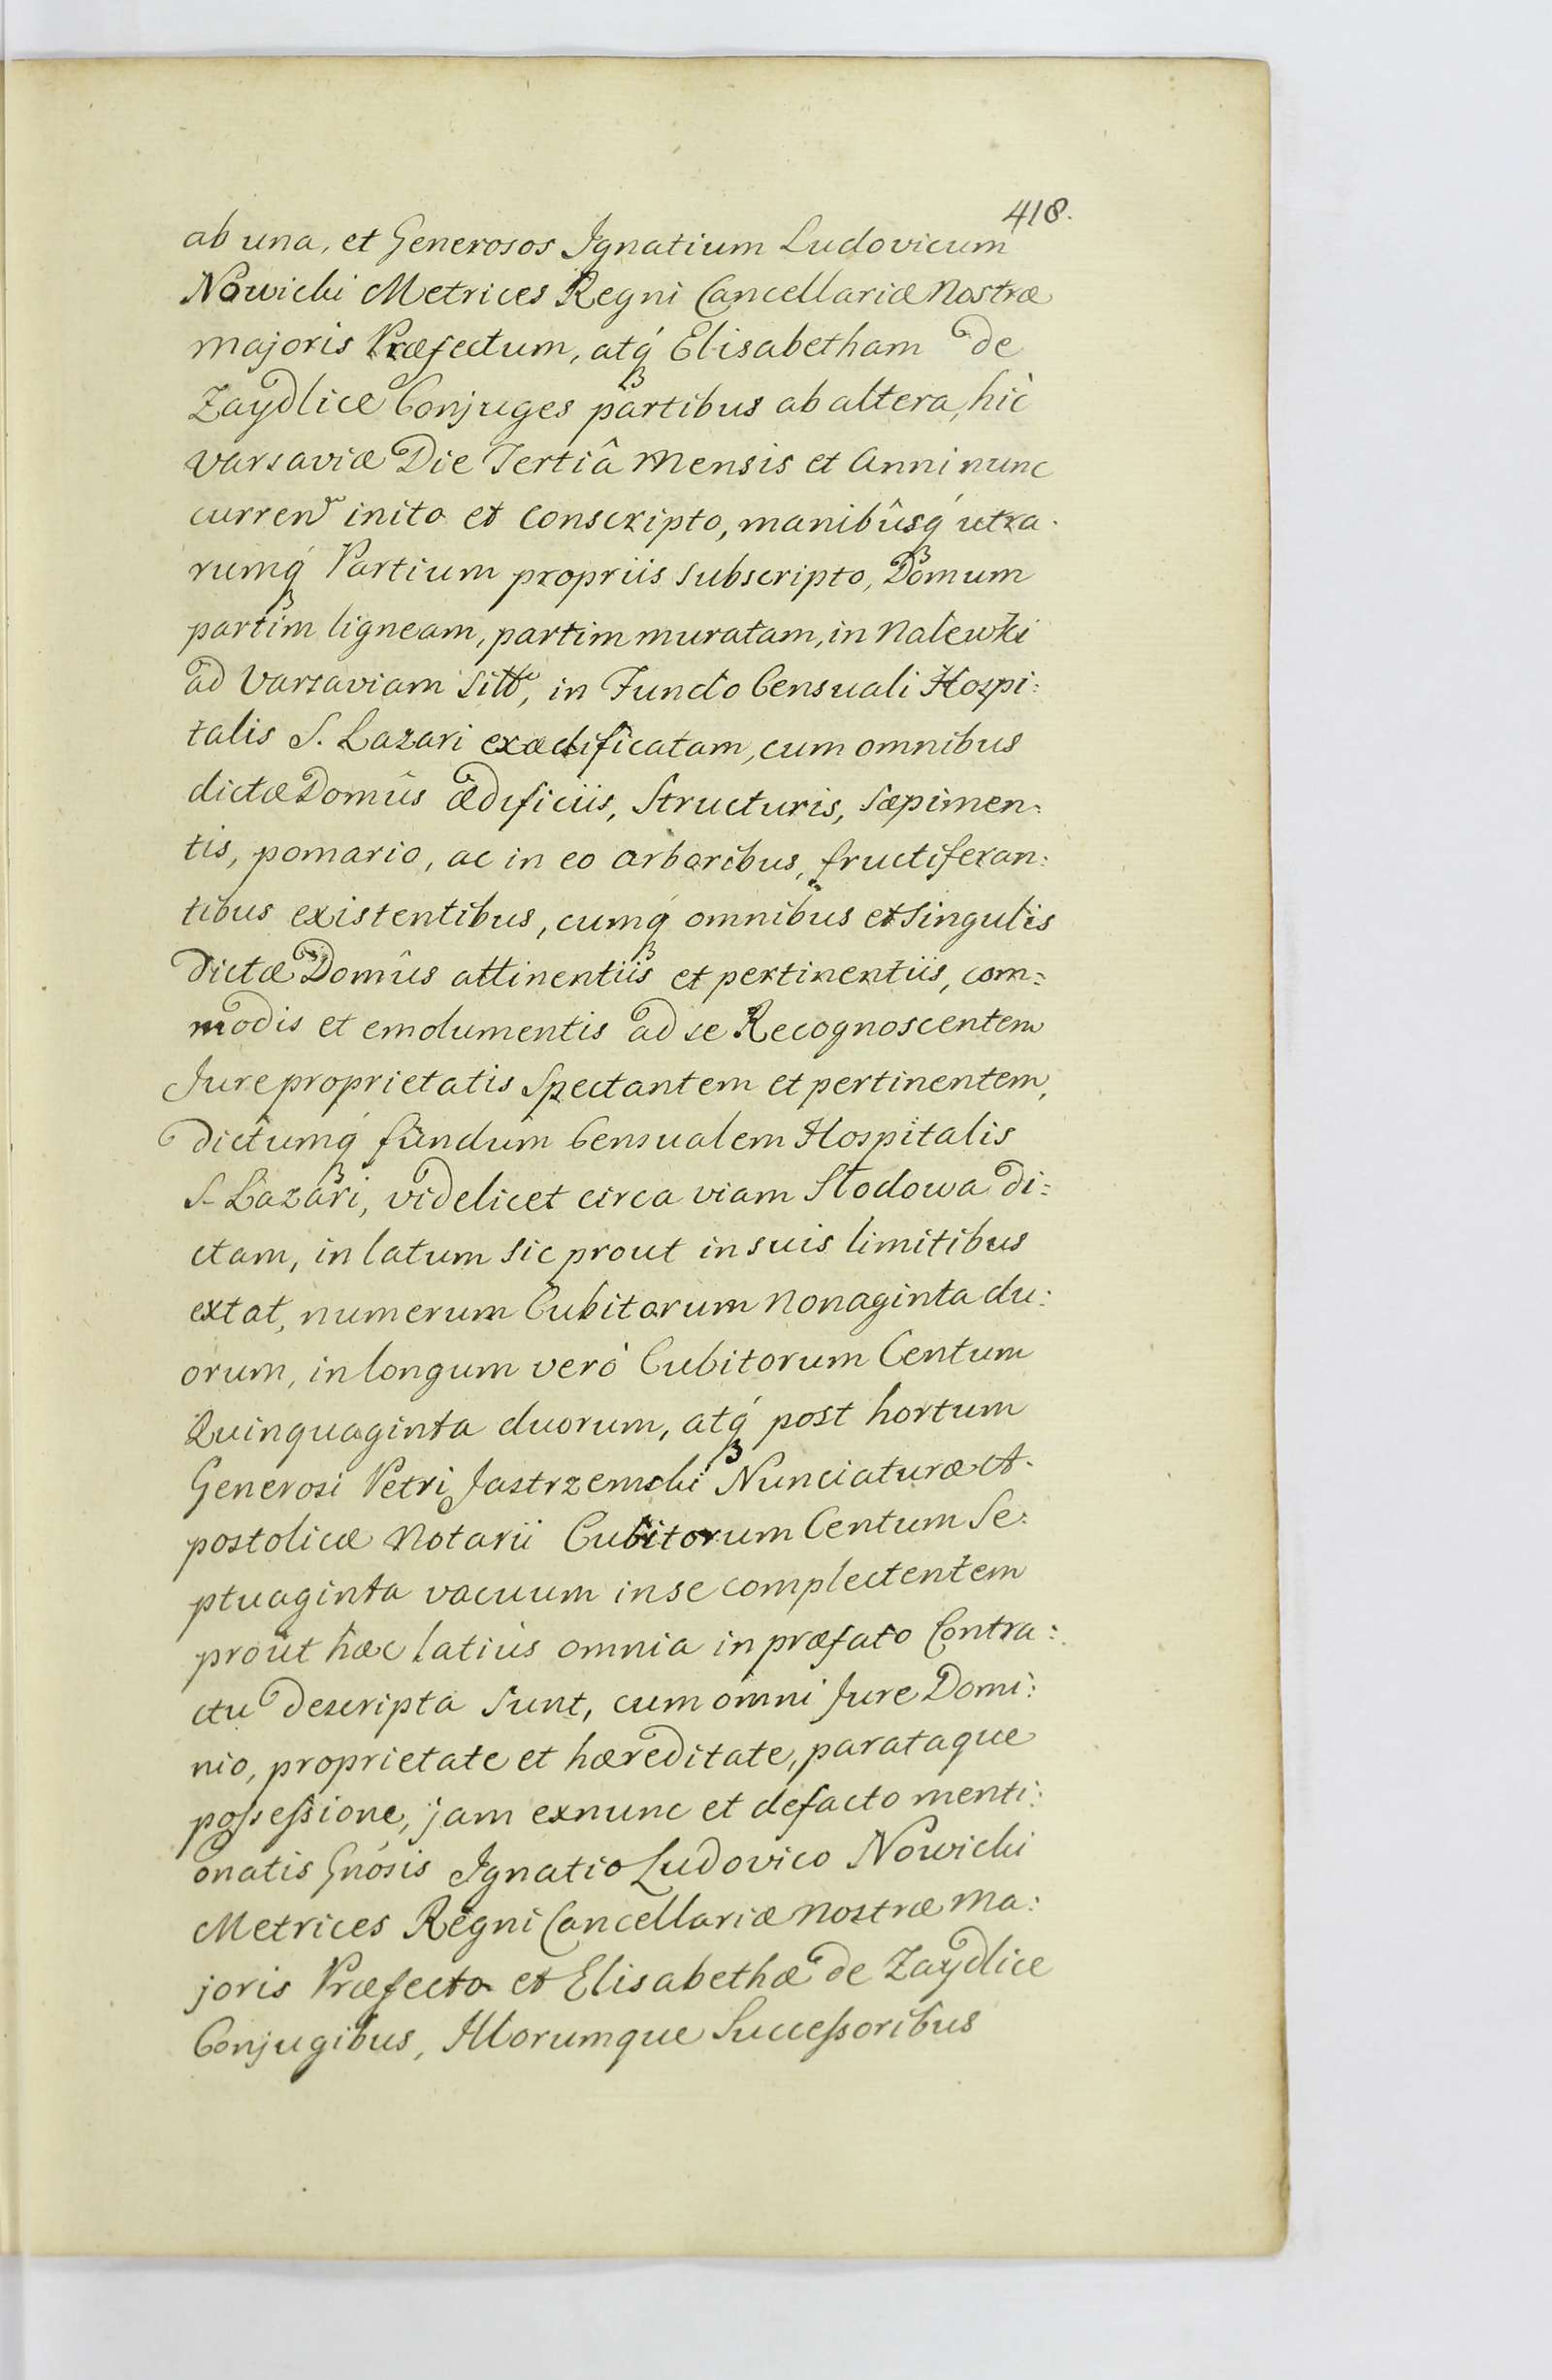 418.
ab una, et Generosos Ignatium Ludovicum
Nowicki Metrices Regni Cancellariæ Nostræ
majoris Præfectum, atq́ Elisabetham de
Zaydlice Conjuges partibus ab altera, hic̀
Varsaviæ Die Tertiâ Mensis et Anni nunc
curren inito et conscripto, manibûsq́ utra-
rumq́ Partium propriis subscripto, Domum
partim ligneam, partim muratam, in Nalewki
ad Varsaviam sitt, in Fundo Censuali Hospi:
talis S. Lazari exædificatam, cum omnibus
dictæ Domûs ædificiis, Structuris, sæpimen:
tis, pomario, ac in eo arboribus, fructiferan:
tibus existentibus, cumq́ omnibus et singulis
dictæ Domûs attinentiis et pertinentiis, com=
modis et emolumentis ad se Recognoscentem
Jure proprietatis Spectantem et pertinentem,
dictumq́ fundum Censualem Hospitalis
S. Lazari, videlicet circa viam Stodowa di=
ctam, in latum sic prout in suis limitibus
extat, numerum Cubitorum Nonaginta du:
orum, in longum verò Cubitorum Centum
Quinquaginta duorum, atq́ post hortum
Generosi Petri Jastrzemski Nunciaturæ A-
postolicæ Notarii Cubitorum Centum Se:
ptuaginta vacuum in se complectentem
prout hæc latius omnia in præfato Contra:
ctu descripta sunt, cum omni Jure Domi:
nio, proprietate et hæreditate, parataque
possessione, jam exnunc et defacto menti:
onatis Gnósis Ignatio Ludovico Nowicki
Metrices Regni Cancellariæ Nostræ Ma:
joris Præfecto et Elisabethæ de Zaydlice
Conjugibus, Illorumque Successoribus